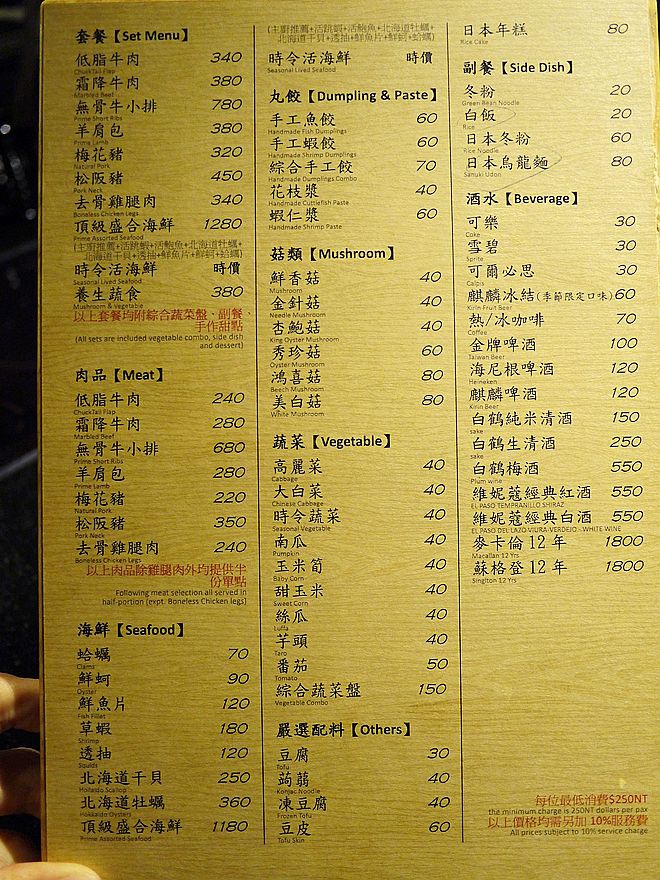 套餐【Set Menu】
低脂牛肉 340
ChuckTail Flap
霜降牛肉 380
Marbled Beef
無骨牛小排 780
Prime Short Ribs
羊肩包 380
Prime Lamb
梅花豬 320
Natural Pork
松阪豬 450
Pork Neck
去骨雞腿肉 340
Boneless Chicken Legs
頂級盛合海鮮 1280
Prime Assorted Seafood
(主廚推薦+活跳蝦+活鮑魚+北海道牡蠣+
北海道干貝+透抽+鮮魚片+鮮蚵+蛤蠣)
時令活海鮮 時價
Seasonal Lived Seafood
養生蔬食 380
Mushroom & Vegetable
以上套餐均附綜合蔬菜盤、副餐、
手作甜點
(All sets are included vegetable combo, side dish
and dessert)
肉品【Meat】
低脂牛肉 240
ChuckTail Flap
霜降牛肉 280
Marbled Beef
無骨牛小排 680
Prime Short Ribs
羊肩包 280
Prime Lamb
梅花豬 220
Natural Pork
松阪豬 350
Pork Neck
去骨雞腿肉 240
Boneless Chicken Legs
以上肉品除雞腿肉外均提供半
份單點
Following meat selection all served in
half-portion (expt. Boneless Chicken legs)
海鮮【Seafood】
蛤蠣 70
Clams
鮮蚵 90
Oyster
鮮魚片 120
Fish Fillet
草蝦 180
Shrimp
透抽 120
Squids
北海道干貝 250
Hokaido Scallop
北海道牡蠣 360
Hokkaido Oysters
頂級盛合海鮮 1180
Prime Assorted Seafood
(主廚推薦+活跳蝦+活鮑魚+北海道牡蠣+
北海道干貝+透抽+鮮魚片+鮮蚵+蛤蠣)
時令活海鮮 時價
Seasonal Lived Seafood
丸餃【Dumpling & Paste】
手工魚餃 60
Handmade Fish Dumplings
手工蝦餃 60
Handmade Shrimp Dumplings
綜合手工餃 70
Handmade Dumplings Combo
花枝漿 40
Handmade Cuttlefish Paste
蝦仁漿 60
Handmade Shrimp Paste
菇類【Mushroom】
鮮香菇 40
Mushroom
金針菇 40
Needle Mushroom
杏鮑菇 40
King Oyster Mushroom
秀珍菇 60
Oyster Mushroom
鴻喜菇 80
Beech Mushroom
美白菇 80
White Mushroom
蔬菜【Vegetable】
高麗菜 40
Cabbage
大白菜 40
Chinese Cabbage
時令蔬菜 40
Seasonal Vegetable
南瓜 40
Pumpkin
玉米筍 40
Baby Corn
甜玉米 40
Sweet Corn
絲瓜 40
Luffa
芋頭 40
Taro
番茄 50
Tomato
綜合蔬菜盤 150
Vegetable Combo
嚴選配料【Others】
豆腐 30
Tofu
蒟蒻 40
Konjac Noodle
凍豆腐 40
Frozen Tofu
豆皮 60
Tofu Skin
日本年糕 80
Rice Cake
副餐【Side Dish】
冬粉 20
Green Bean Noodle
白飯 20
Rice
日本冬粉 60
Rice Noodle
日本烏龍麵 80
Sanuki Udon
酒水【Beverage】
可樂 30
Coke
雪碧 30
Sprite
可爾必思 30
Calpis
麒麟冰結(季節限定口味) 60
Kirin Fruit Beer
熱/冰咖啡 70
Coffee
金牌啤酒 100
Taiwan Beer
海尼根啤酒 120
Heineken
麒麟啤酒 120
Kirin Beer
白鶴純米清酒 150
sake
白鶴生清酒 250
sake
白鶴梅酒 550
Plum wine
維妮蔻經典紅酒 550
EL PASO TEMPRANILLO SHIRAZ
維妮蔻經典白酒 550
EL PASO DEL LAZO VIURA-VERDEJO - WHITE WINE
麥卡倫12年 1800
Macallan 12 Yrs
蘇格登12年 1800
Singlton 12 Yrs
每位最低消費$250NT
the minimum charge is 250NT dollars per pax
以上價格均需另加 10%服務費
All prices subject to 10% service charge